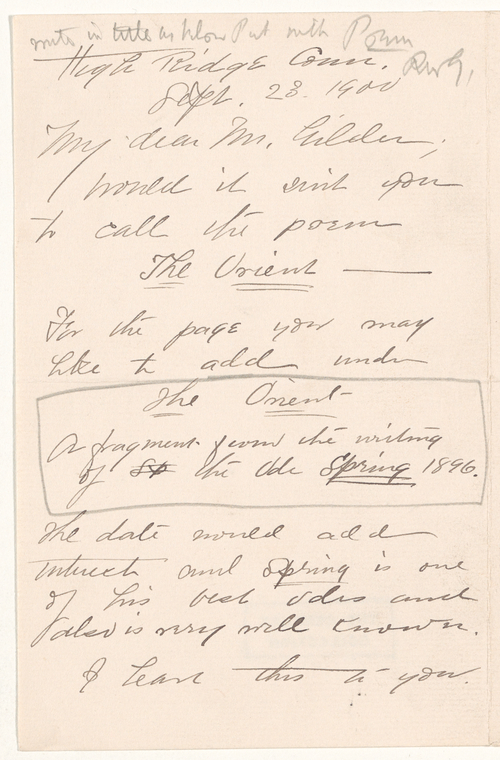 write in title as below Put with Poem
RWG.
High Ridge Conn.
Sept. 23. 1900
My dear Mr. Gilder,
Would it suit you
to call the poem
The Orient —
For the page you may
like to add under
The Orient
A fragment from the writing
of the Ode Spring 1896.
The date would add
interest and Spring is one
of his best odes and
also is very well known.
I leave this to you.